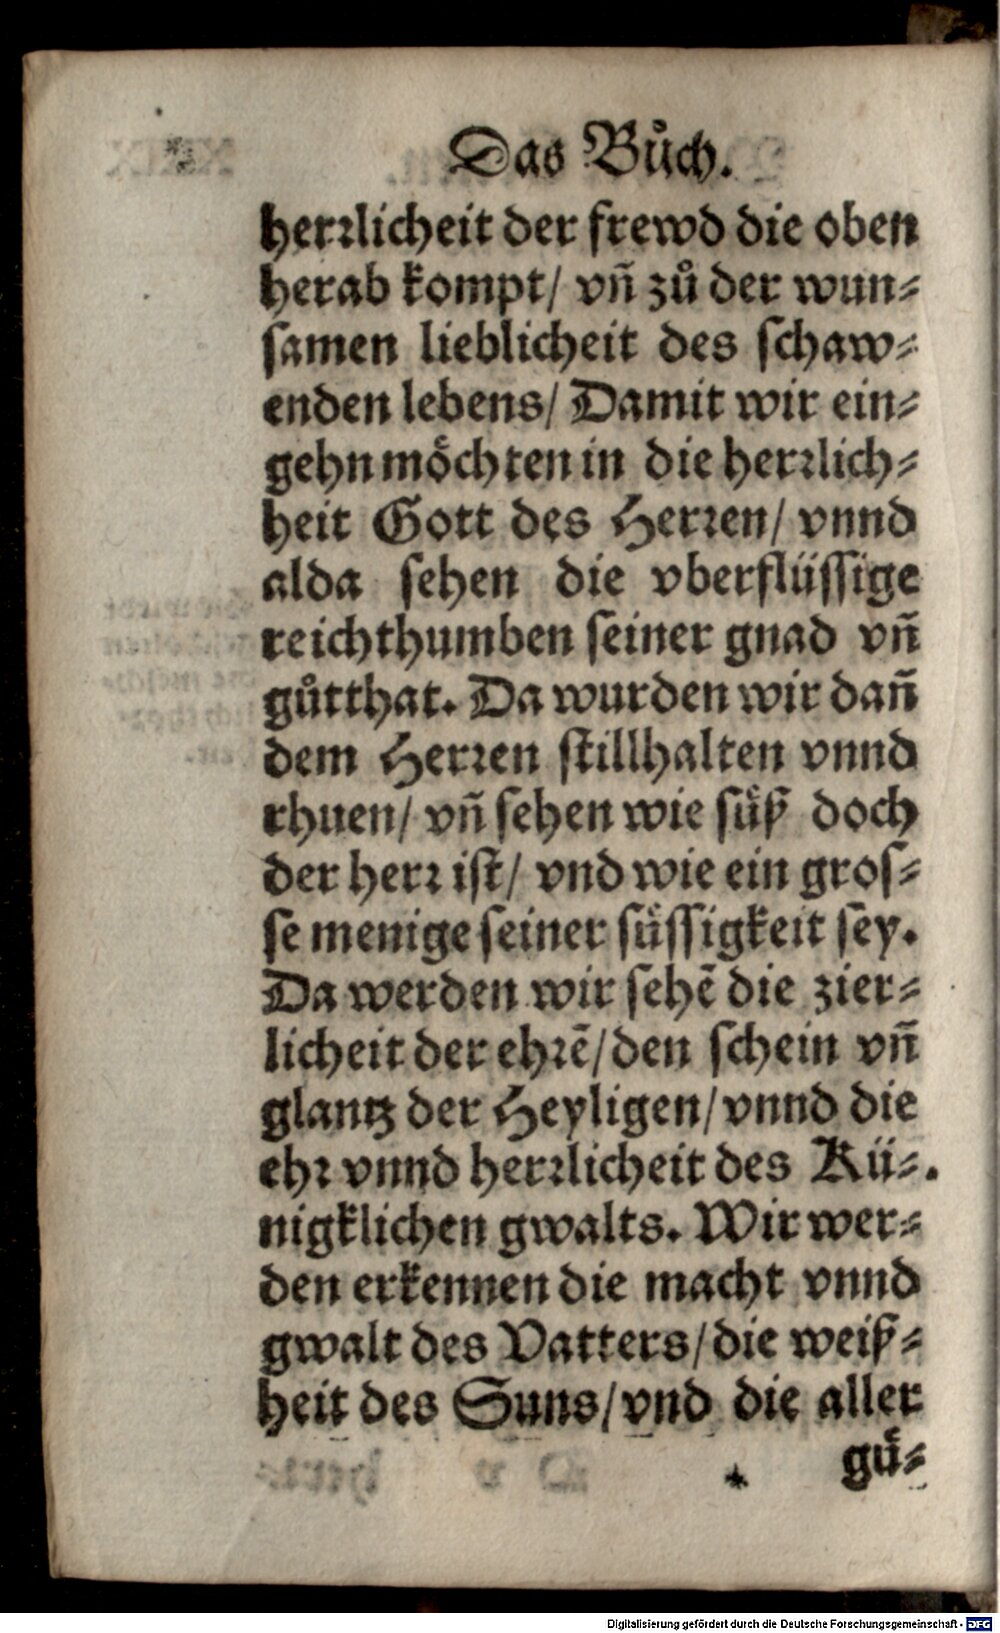 Das Bůch.
herꝛlicheit der frewd die oben
herab kompt/ vñ zů der wun⸗
samen lieblicheit des schaw⸗
enden lebens/ Damit wir ein⸗
gehn möchten in die herꝛlich⸗
heit Gott des Herꝛen/ vnnd
alda sehen die vberflüssige
reichthumben seiner gnad vñ
gůtthat. Da wurden wir dañ
dem Herꝛen stillhalten vnnd
rhuen/ vñ sehen wie süß doch
der herꝛ ist/ vnd wie ein gros⸗
se menige seiner süssigkeit sey.
Da werden wir sehẽ die zier⸗
licheit der ehꝛẽ/ den schein vñ
glantz der Heyligen/ vnnd die
ehꝛ vnnd herꝛlicheit des Kü⸗
nigklichen gwalts. Wir wer⸗
den erkennen die macht vnnd
gwalt des Vatters/ die weiß⸗
heit des Suns/ vnd die aller
gü⸗
Digitalisierung gefördert durch die Deutsche Forschungsgemeinschaft - DFG